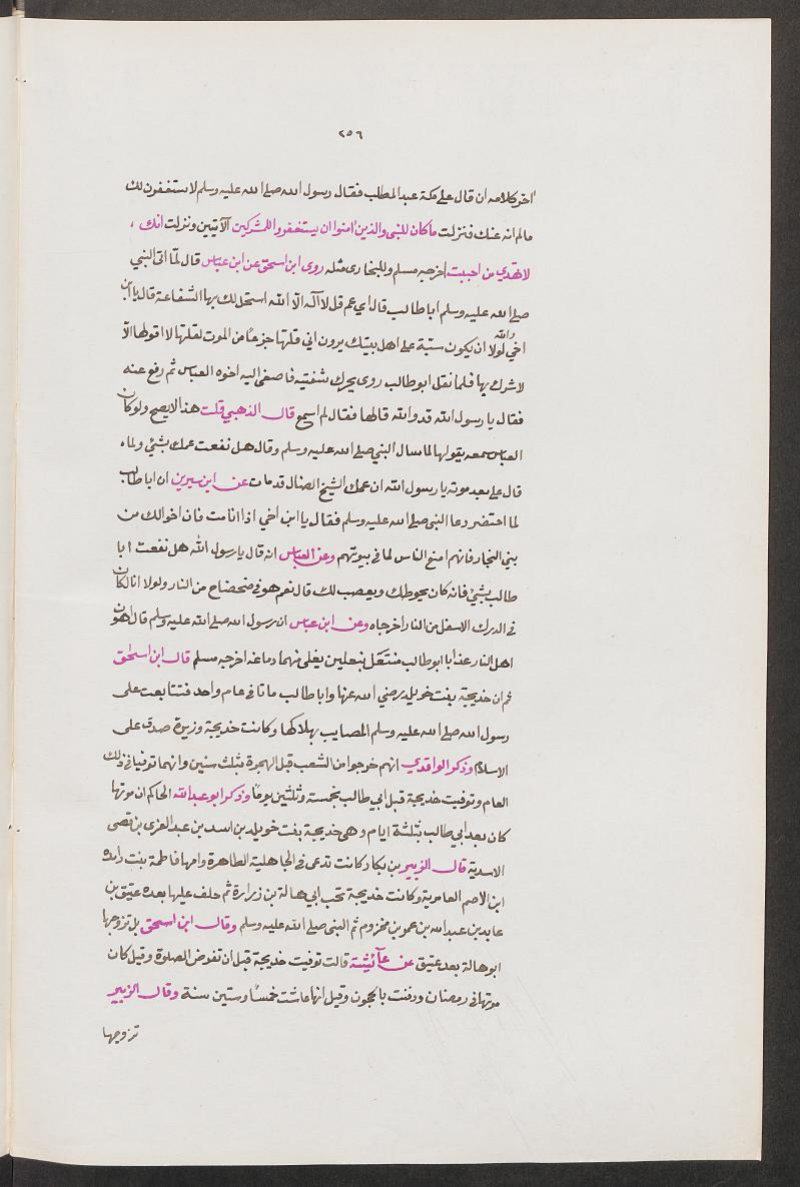 ٢٥٦
اخر كلامه ان قال على ملة عبد المطلب فقال رسول الله صلى الله عليه وسلم لاستغفرن لك
مالم انه عنك فنزلت ماكان للنبى والذين امنوا ان يستغفروا للمشركين الآيتين ونزلت انك
لاتهدي من احببت اخرجه مسلم وللبخارى مثله روى ابن اسحق عن ابن عباس قال لمّا اتى النبي
صلى الله عليه وسلم ابا طالب قال اي عم قل لا آله الّا الله استحل لك بها الشفاعة قال يا ابن
اخي والله لولا ان يكون سبّة على اهل بيتك يرون اني قلتها جزعًا من الموت لقلتها لا اقولها الّا
لاسرك بها فلما ثقل ابو طالب روى يحرك شفتيه فاصغى اليه اخوه العباس ثم رفع عنه
فقال يا رسول الله قد والله قالها فقال لم اسمع قال الذهبي قلت هذا لايصح ولو كان
العباس سمعه يقولها لما سال النبي صلى الله عليه وسلم وقال هل نفعت عمك بشئ ولما
قال على بعد موته يا رسول الله ان عمك الشيخ الضال قد مات عن ابن سيرين ان ابا طالب
لما احتضر دعا النبى صلى الله عليه وسلم فقال يا ابن اخي اذا انا مت فات اخوالك من
بني النجار فانهم امنع الناس لما فى بيوتهم وعن العباس انه قال يا رسول الله هل نفعت ابا
طالب بشئ فانه كان يحوطك ويغضب لك قال نعم هو فى ضحضاح من النار ولولا انا لكان
فى الدرك الاسفل من النار اخرجاه وعن ابن عباس ان رسول الله صلى الله عليه وسلم قال اهون
اهل النار عذابا ابو طالب منتعل بنعلين يغلى منهما دماغه اخرجه مسلم قال ابن اسحق
ثم ان خديجة بنت خويلد رضي الله عنها وابا طالب ماتا فى عام واحد فتتابعت على
رسول الله صلى الله عليه وسلم المصايب بهلاكها وكانت خديجة وزيرة صدق على
الاسلام وذكر الواقدي انهم خرجوا من الشعب قبل الهجرة بثلث سنين وانهما توفيا فى ذلك
العام وتوفيت خديجة قبل ابي طالب بخمسة وثلثين يومًا وذكر ابو عبد الله الحاكم ان موتها
كان بعد ابي طالب بثلثة ايام وهى خديجة بنت خويلد بن اسد بن عبد العزى بن قصى
الاسدية قال الزبير بن بكار كانت تدعى فى الجاهلية الطاهرة وامها فاطمة بنت زايدة
ابن الاصم العامرية وكانت خديجة تحب ابي هالة بن زرارة ثم خلف عليها بعده عتيق بن
عابد بن عبد الله بن عمرو بن مخزوم ثم النبى صلى الله عليه وسلم وقال ابن اسحق بل تزوجها
ابو هالة بعد عتيق عن عآئيشة قالت توفيت خديجة قبل ان تفرض الصلوة وقيل كان
موتها فى رمضان ودفنت بالحجون وقيل انها عاشت خمسًا وستين سنة وقال الزبير
تزوجها